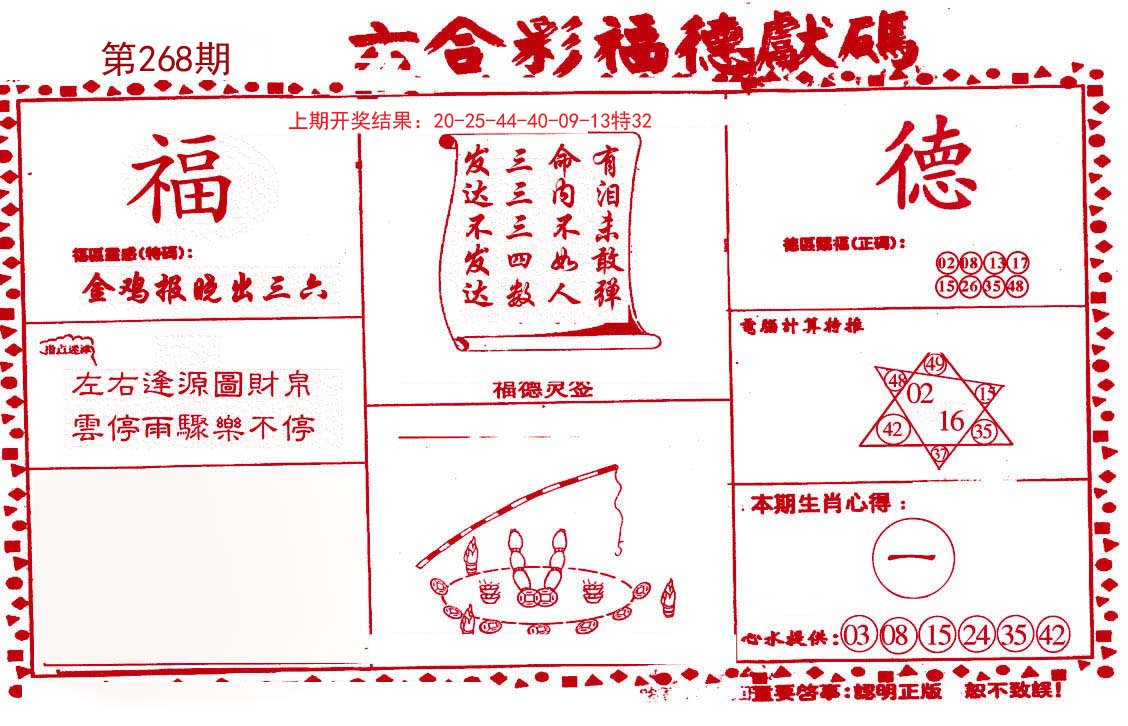 六合彩福德獻碼
第268期
上期开奖结果：20-25-44-40-09-13特32
福
福區靈感(特碼)：
金鸡报晓出三六
指点迷津
左右逢源圖財帛
雲停雨驟樂不停
有泪未敢弹
命内不如人
三三三四数
发达不发达
福德灵签
德
德區賜福(正碼)：
02 08 13 17
15 26 35 48
電腦計算特推
49
48 02 15
16
42 35
37
本期生肖心得：
一
心水提供：03 08 15 24 35 42
重要啓事：認明正版 恕不致誤！